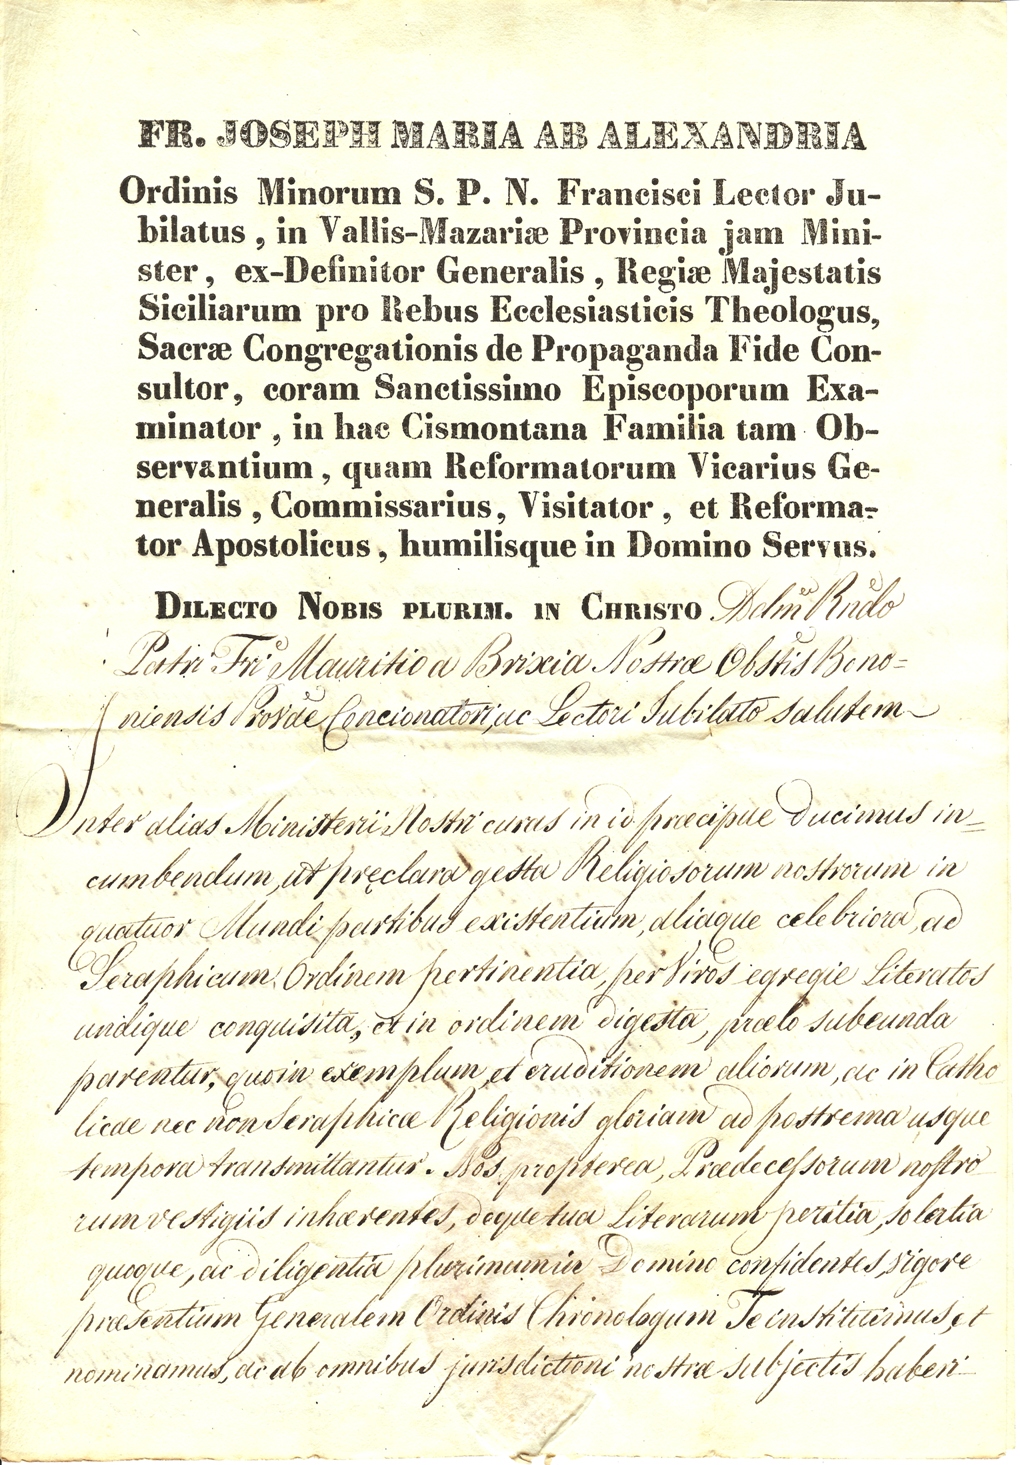 FR. JOSEPH MARIA AB ALEXANDRIA
Ordinis Minorum S. P. N. Francisci Lector Ju-
bilatus, in Vallis-Mazariæ Provincia jam Mini-
ster, ex-Definitor Generalis, Regiæ Majestatis
Siciliarum pro Rebus Ecclesiasticis Theologus,
Sacræ Congregationis de Propaganda Fide Con-
sultor, coram Sanctissimo Episcoporum Exa-
minator, in hac Cismontana Familia tam Ob-
servantium, quam Reformatorum Vicarius Ge-
neralis, Commissarius, Visitator, et Reforma-
tor Apostolicus, humilisque in Domino Servus.
DILECTO NOBIS PLURIM. IN CHRISTO Adm Rndo
Patri Fri Mauritio a Brixia Nostræ Obstis Bono=
niensis Provæ Concionatori, ac Lectori Jubilato salutem
Inter alias Ministerii Nostri curas in id præcipue ducimus in=
cumbendum, ut pręclara gesta Religiosorum nostrorum in
quatuor Mundi partibus existentium, aliaque celebriora, ad
Seraphicum Ordinem pertinentia, per Viros egregie Literatos
undique conquisita, et in ordinem digesta, prælo subeunda
parentur, quo in exemplum, et eruditionem aliorum, ac in Catho
licae nec non Seraphicæ Religionis gloriam ad postrema usque
tempora transmittantur. Nos propterea, Prædecessorum nostro
rum vestigiis inhærentes, deque tua Literarum peritia, solertia
quoque, ac diligentia plurimum in Domino confidentes, vigore
præsentium Generalem Ordinis Chronologum Te instituimus, et
nominamus, ac ab omnibus jurisdictioni nostræ subjectis haberi